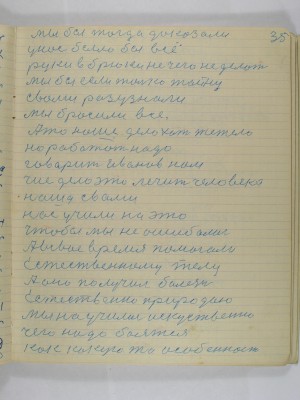 35
мы бы тогда доказали
у нас было бы всё
руки в брюки нечего неделат
мы бы сели только тайну
свами разузнали
мы бросили всё.
А то наше дело хот тяжело
но работат надо
говарит Иванов нам
чие дело это лечит человека
наша свами
нас учили на это
чтобы мы не ошибалис
Аывое время помогали
Естественному телу
А оно получил болезн
Естественно природою
мы научилис искуственно
чего надо боятся
как какую то особенност